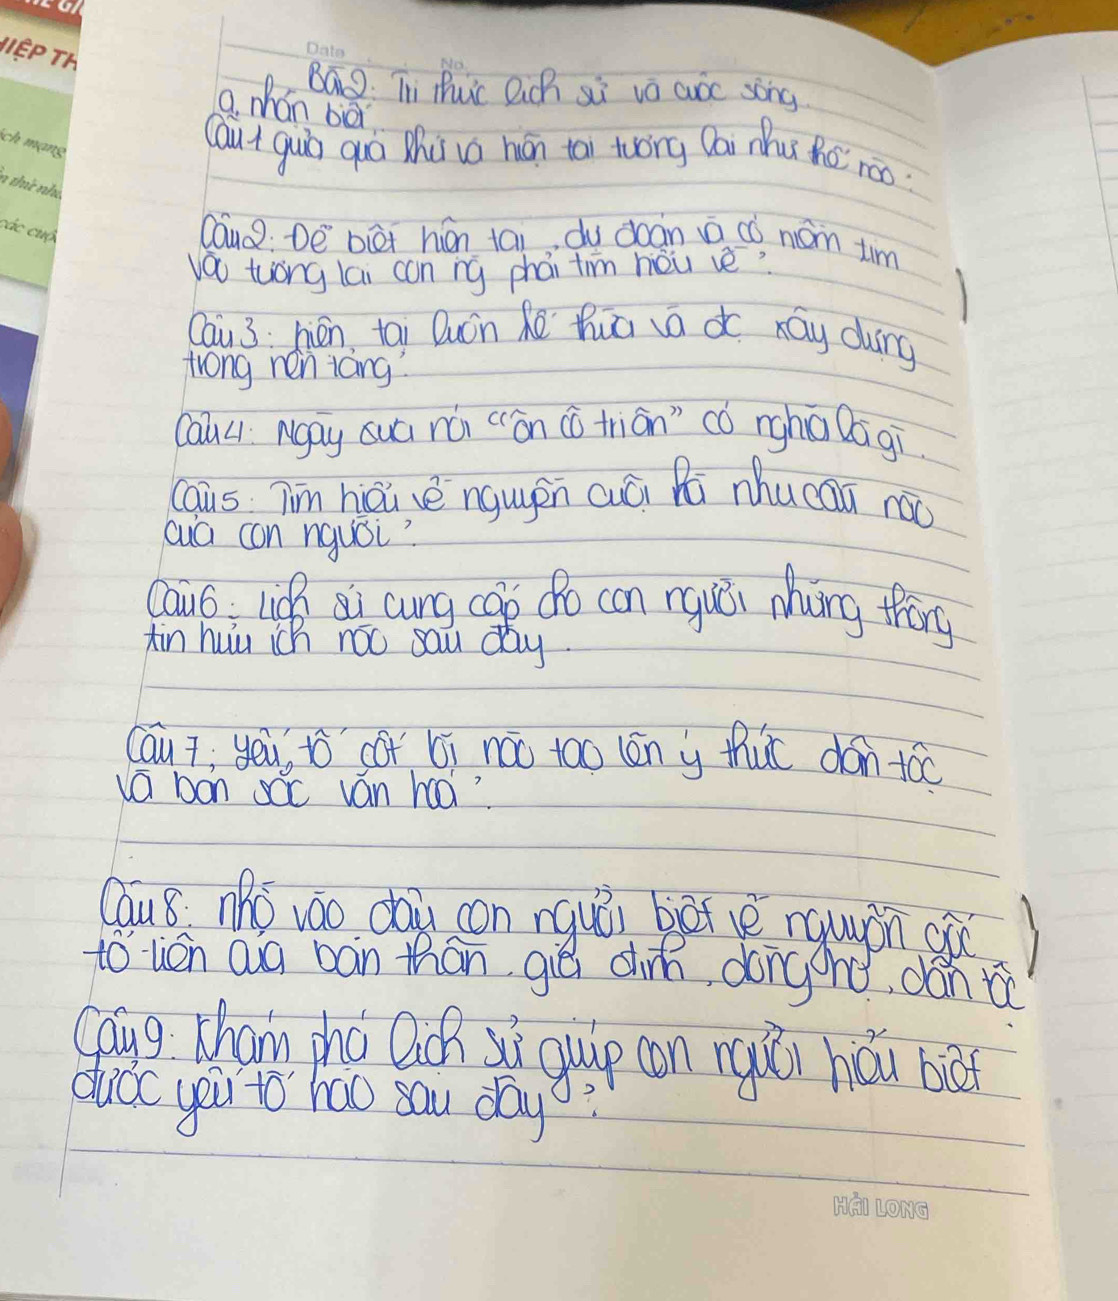 HIỆP TH
ích mạng
các cuộ
Date
No.
Bài 2: Tri thức lịch sử và cuộc sống
a. nhận biết
Câu 1 giữa quá khứ và hiện tại tương lai như thế nào:
Câu 2: Để biết hiện tại, dự đoán và có niềm tim
vào tương lai con ng phải tìm hiểu về?
Câu 3: hiện tại luôn kế thừa và đc xây dựng
trong nền tảng?
Câu 4: Ngày xưa nói “ôn cố tri ân” có nghĩa là gì.
Câu 5: Tìm hiểu về nguyền cuội là nhu cầu nào
của con người?
Câu 6: Lịch sử cung cấp cho con người những thông
tin hưu ích nào sau đây.
Câu 7: yếu tố cốt lõi nào tạo lên ý thức dân tộc
và bản sắc văn hoá?
Câu 8: nhờ vào đâu con người biết về nguyền gốc
tổ tiên của bản thân, gia đình, dòng họ, dân tộc
Câu 9: Khám phá lịch sử giúp con người hiểu biết
được yếu tố hào sau đây?
HẢI LONG